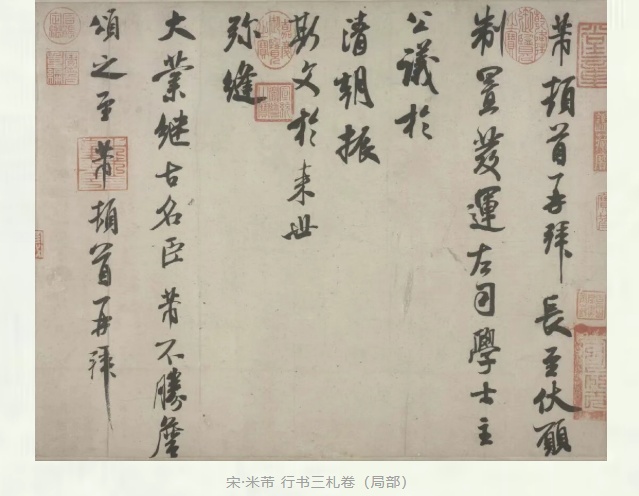 芾頓首再拜長至伏願
制置發運左司學士主
公議於
清朝振
斯文於来世
弥縫
大業継古名臣芾不勝詹
頌之至芾頓首再拜
宋·米芾 行书三札卷（局部）